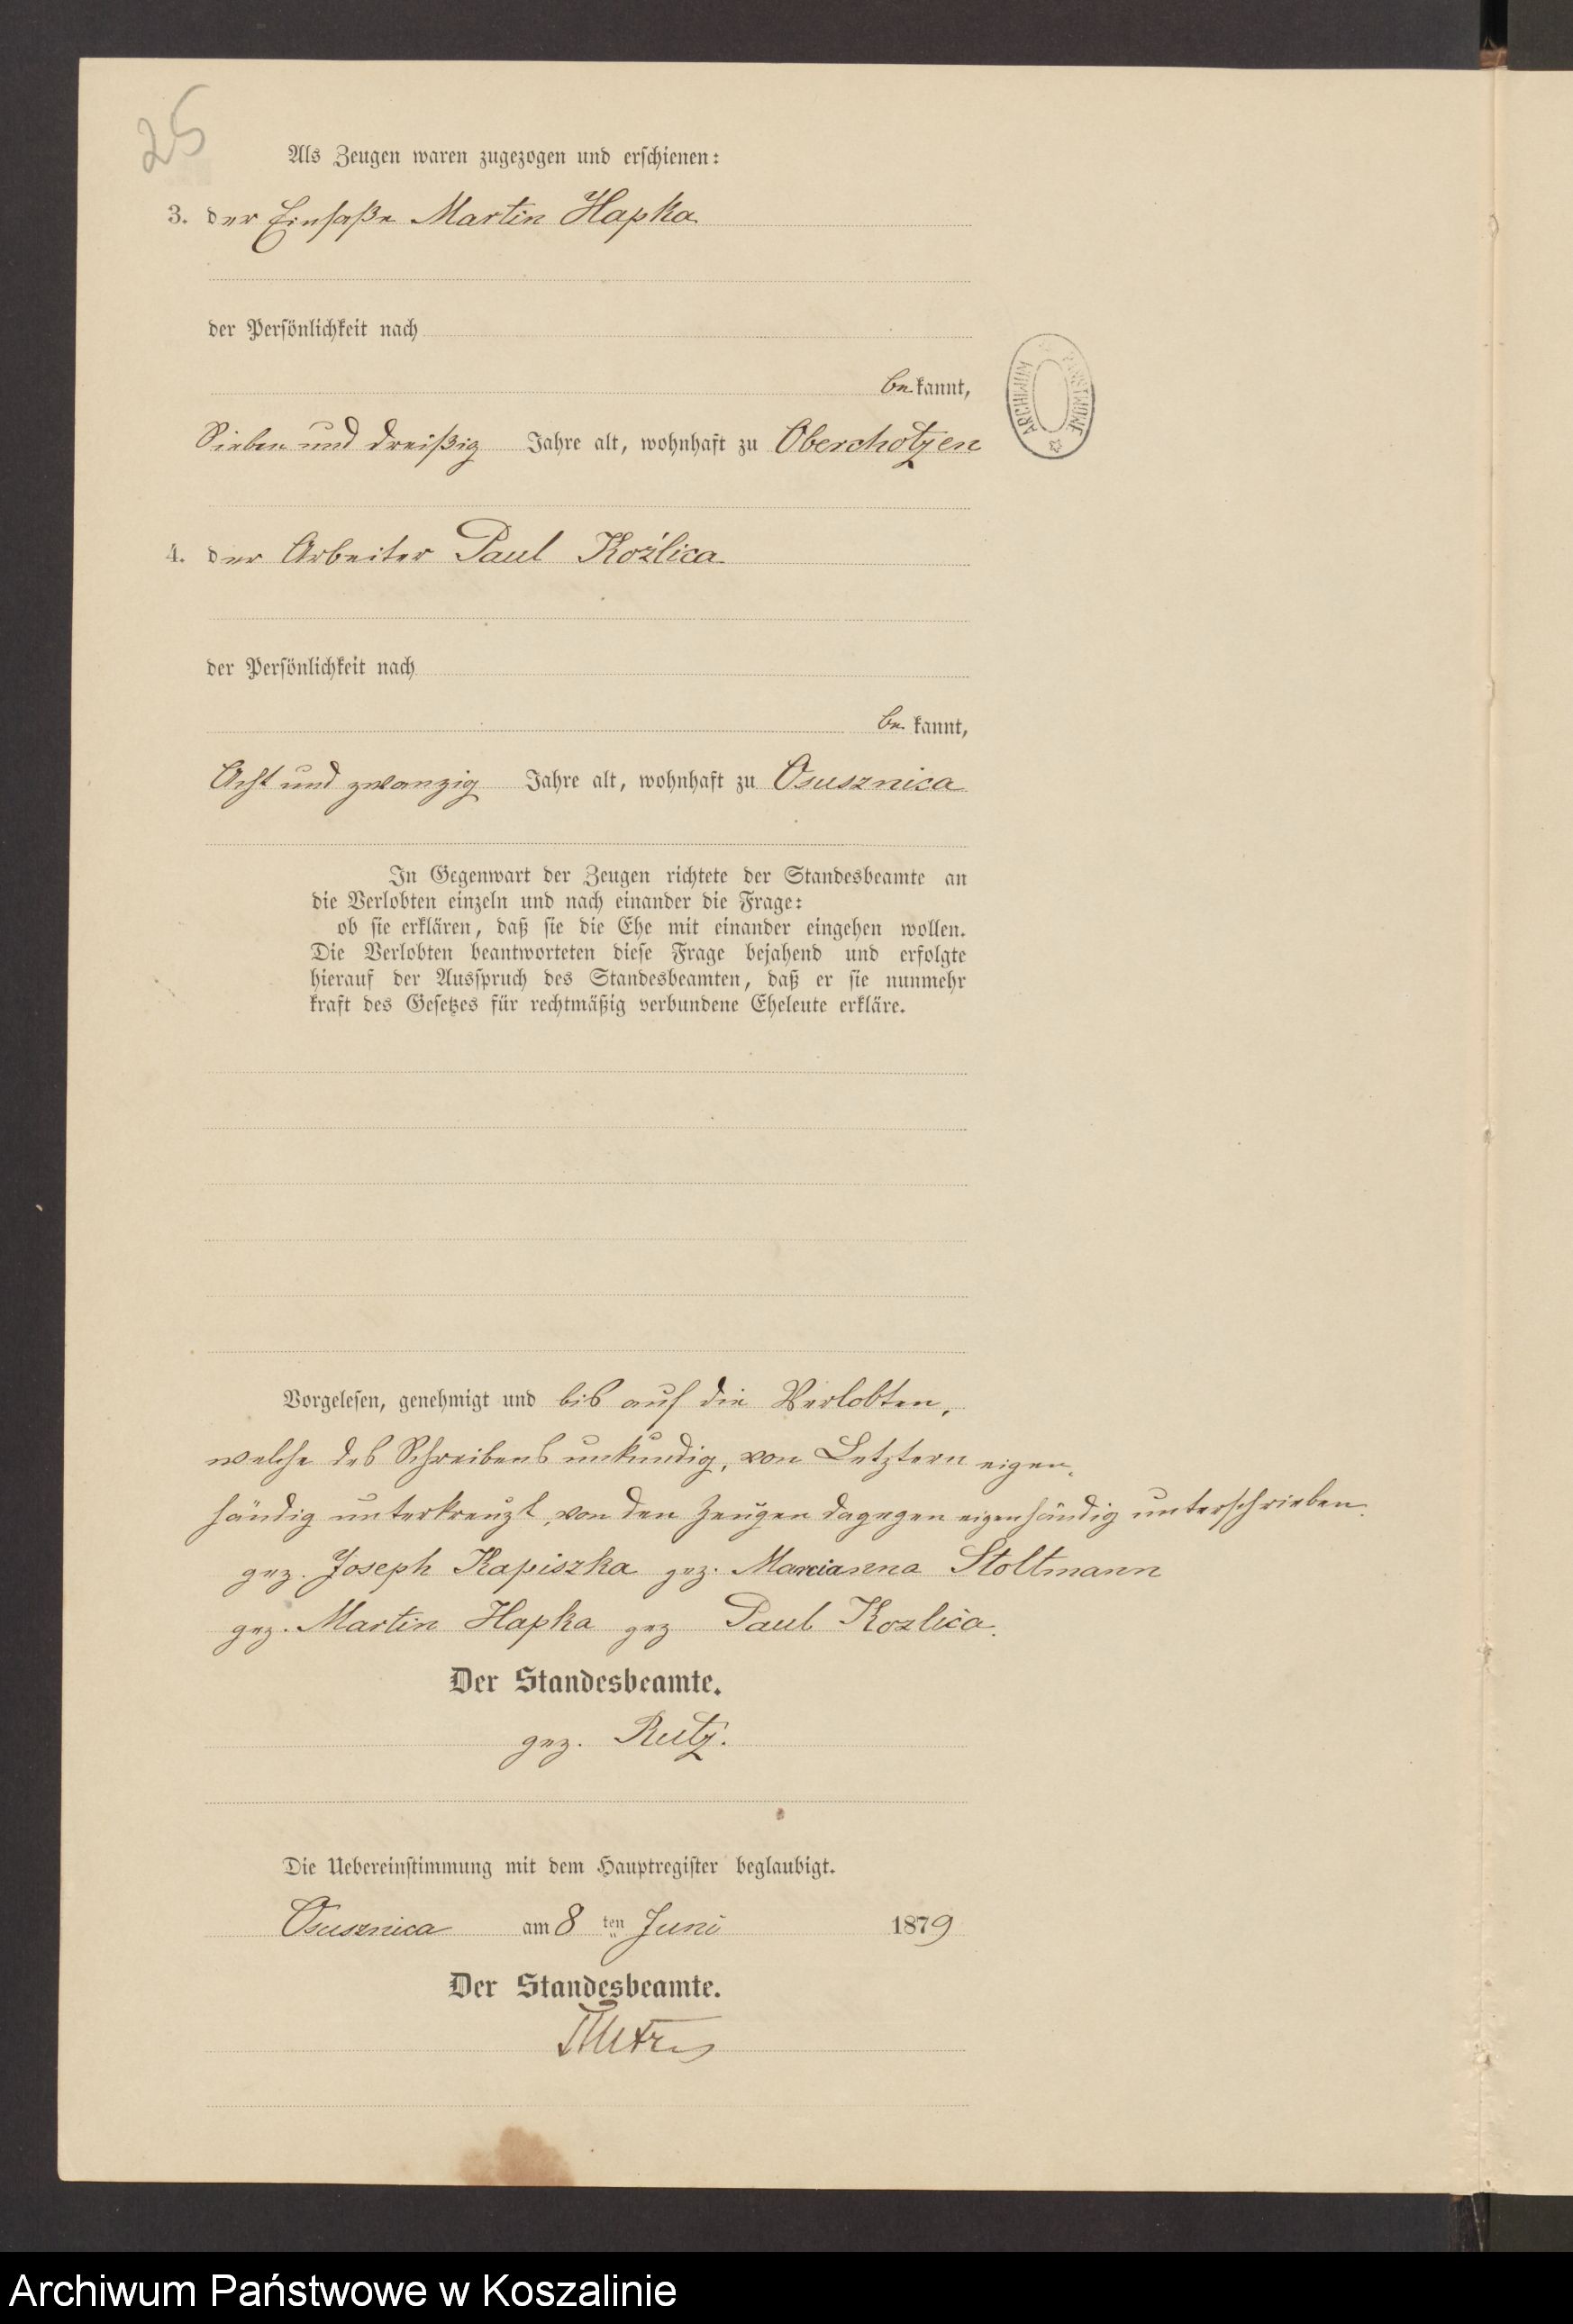 25
Als Zeugen waren zugezogen und erschienen:
3. der Einsaße Martin Hapka
der Persönlichkeit nach
be kannt,
Sieben und dreißig Jahre alt, wohnhaft zu Oberchotzen
4. der Arbeiter Paul Kožlica
der Persönlichkeit nach
be kannt,
Acht und zwanzig Jahre alt, wohnhaft zu Osusznica
In Gegenwart der Zeugen richtete der Standesbeamte an
die Verlobten einzeln und nach einander die Frage:
ob sie erklären, daß sie die Ehe mit einander eingehen wollen.
Die Verlobten beantworteten diese Frage bejahend und erfolgte
hierauf der Ausspruch des Standesbeamten, daß er sie nunmehr
kraft des Gesetzes für rechtmäßig verbundene Eheleute erkläre.
Vorgelesen, genehmigt und bis auf die Verlobten,
welche des Schreibens unkundig, von Letztern eigen-
händig unterkreuzt, von den Zeugen dagegen eigenhändig unterschrieben.
gez. Joseph Kapiszka gez. Marcianna Stoltmann
gez. Martin Hapka gez Paul Kozlica.
Der Standesbeamte.
gez. Rutz.
Die Uebereinstimmung mit dem Hauptregister beglaubigt.
Osusznica am 8 ten Juni 1879
Der Standesbeamte.
Rutz
ARCHIWUM PAŃSTWOWE
Archiwum Państwowe w Koszalinie